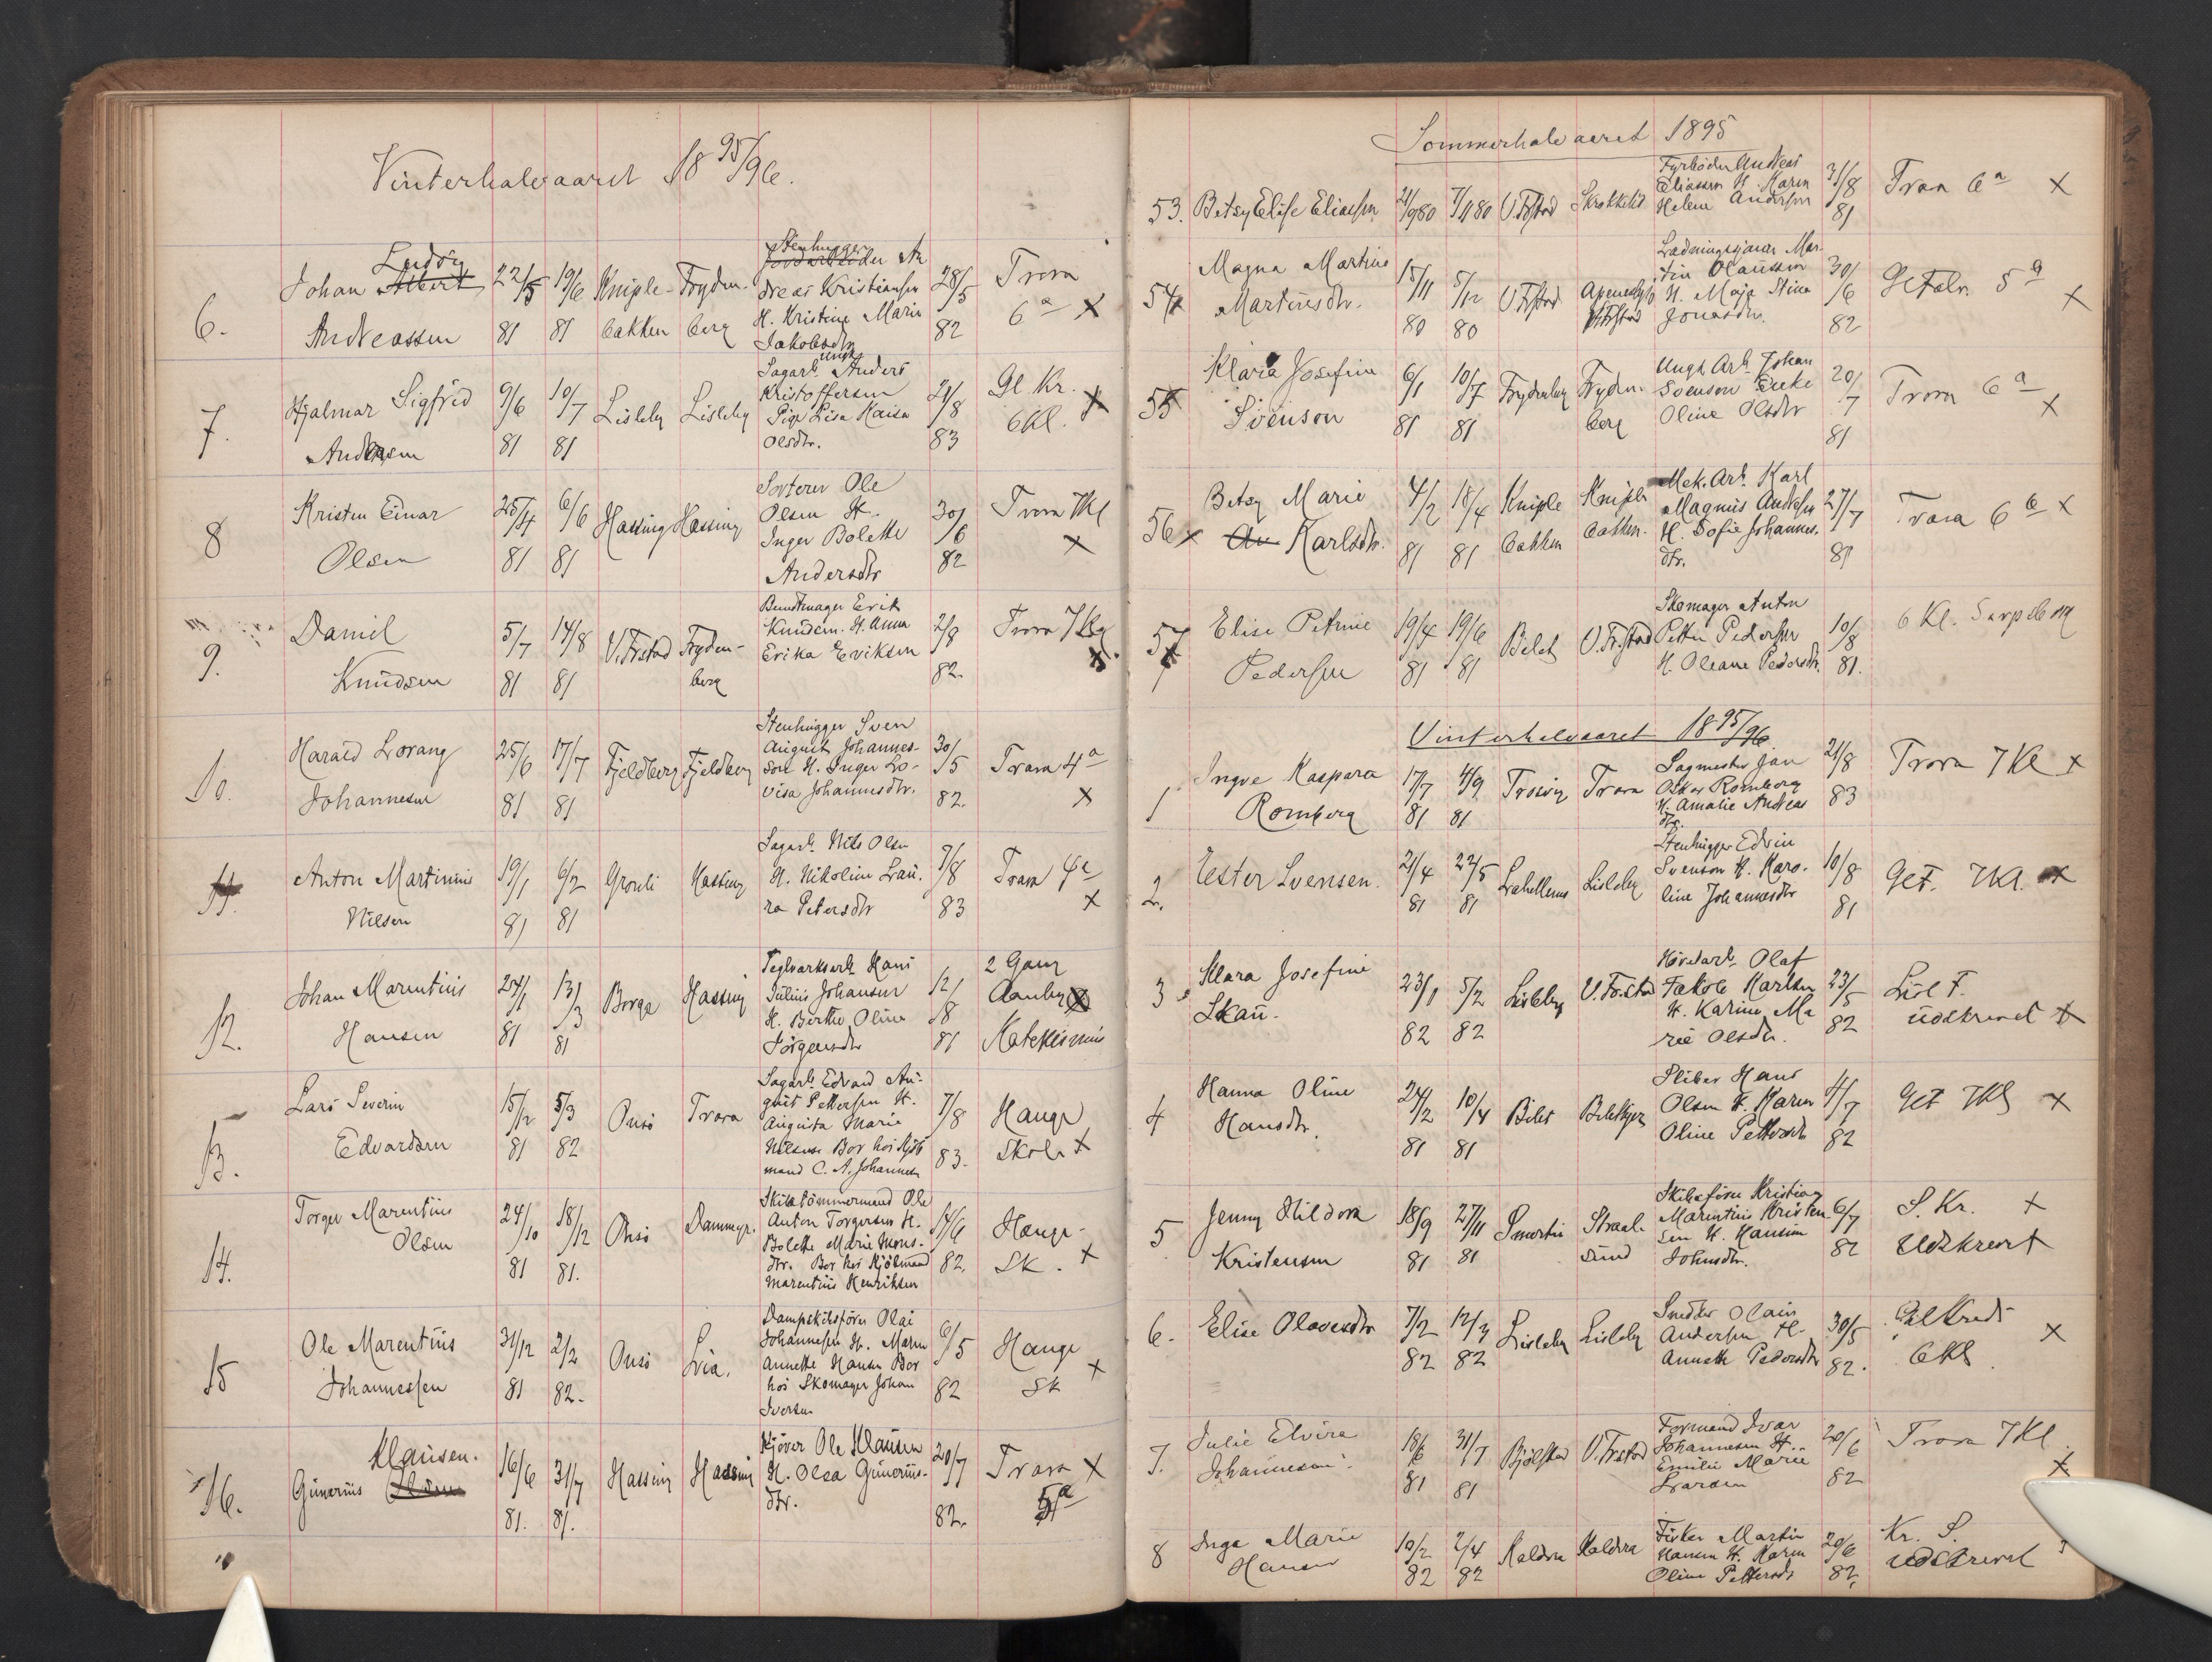 Vinterhalvaaret 18 95/96.
6. Johan Albert Ludvig Andreassen 22/5 81 19/6 81 Kniple- bakken Fryden- berg
Stenhugger An
dreas Kristiansen
H. Kristine Marie
Jakobsdtr
28/5 82 Trara 6 a X
7. Hjalmar Sigfrid Andersen 9/6 81 10/7 81 Lisleby Lisleby
Sagarb. Anders
Kristoffersen
Pige Lisa Kaisa
Olsdtr.
21/8 83 Gl Kr. 6 Kl. X
8 Kristen Einar Olsen 25/4 81 6/6 81 Hassing Hassing
Sorterer Ole
Olsen H.
Inger Bolette
Andersdtr
30/6 82 Trara 7 Kl X
9. Daniel Knudsen 5/7 81 14/8 81 V. Frstad Fryden- berg
Bundtmager Erik
Knudsen. H. Anna
Erika Eriksen
2/8 82. Trara 7 Kl X
10. Harald Lorang Johannesen 25/6 81 17/7 81 Fjeldberg Fjeldberg
Stenhugger Sven
August Johannes-
son H. Inger Lo-
visa Johannesdtr.
30/5 82. Trara 4 a X
11. Anton Martinius Nilsen 19/1 81 6/2 81 Grouli Hassing
Sagarb. Nils Olsen
H. Nikoline Lau-
ra Petersdtr
7/8 83 Trara X
12. Johan Marentius Hansen 24/1 81 13/3 81 Borge Hassing
Teglværksarb. Hans
Julius Johansen
H. Berthe Oline
Jörgensdtr
12/8 81 2 Gang Aanby X Katekismus
13. Lars Severin Edvardsen 15/12 81 5/3 82 Onsö Trara
Sagarb. Edvard Au-
gust Pettersen H.
Augusta Marie
Nilsen Bor hos
mand C. A. Johannesen
7/8 83. Hauge Skole X
14. Torger Marentius Olsen 24/10 81 18/12 81. Onsö Dammyr.
Skibstömmermand Ole
Anton Torgersen H.
Bolette Marie Mons-
dtr. Bor hos Kjöbmand
Marentius Henriksen
14/6 82. Hauge- Sk. X
15 Ole Marentius Johannessen 31/12 81 2/2 82. Onsö Lvia.
Dampskibsförer Olai
Johannessen H. Maren
Annette Hansen Bor
hos Skomager Johan
Iversen
6/5 82 Hauge Sk X
16. Gunerius Olsen Klausen. 16/6 81. 31/7 81. Hassing Hassing
Kjörer Ole Klausen
H. Olea Gunerius-
dtr.
20/7 82. Trara X 5 a
Sommerhalvaaret 1895
53. Betsy Elise Eliassen 21/9 80 7/11 80 V. Frstad
Fyrböder Andreas
Eliassen H. Karen
Helene Andersen
31/8 81 Trara 6 a X
54 Magna Martine Martinsdtr. 15/11 80 5/12 80 V. Frstad
Ladningsfarer Mar-
tin Olaussen
H. Maja Stina
Jonasdtr.
30/6 82 5 a X
55 Klara Josefine Svenson 6/1 81 10/7 81 Frydenberg Fryden- berg
Ungk Arb. Johan
Svenson Enke
Oline Olsdtr
20/7 81 Trara 6 a X
56 x Betsy Marie An Karlsdtr. 4/2 81 18/4 81 Kniple bakken Kniple bakken.
Mek. Arb. Karl
Magnus Andersen
H. Sofie Johannes-
dtr.
27/7 81 Trara 6 a X
57 Elise Petrine Pedersen 19/4 81 19/6 81 Bilet V. Frstad
Skomager Anton
Petter Pedersen
H. Oleane Pedersdtr.
10/8 81. 6 Kl. Sarpsborg
Vinterhalvaaret 18 95/96
1 Ingve Kaspara Romberg 17/7 81 4/9 81 Trosvig Trara
Sagmester Jan
Oskar Romberg
H. Amalie Andreas
dtr.
21/8 83 Trara 7 Kl X
2. Ester Svensen. 21/4 81 22/5 81 Lisleby
Stenhugger Edvin
Svenson H. Karo-
line Johannesdtr
10/8 81 Get. 7 Kl. X
3 Klara Josefine Skau. 23/1 82 5/2 82 Lisleby V. Fr.stad
Olaf
Jakob Karlsen
H. Karine Ma
rie Olsdtr.
23/5 82 Lisl F. udskrevet X
4 Hanna Oline Hansdtr. 24/2 81 10/4 81 Bilet
Sliber Hans
Olsen H. Karen
Oline Pettersdtr
4/7 82 Get 7 Kl X
5 Jenny Hildora Kristensen 18/9 81 27/11 81 Smertu Straal- sund
Skibsförer Kristian
Marentius Kristen-
sen H. Hansine
Johnsdtr.
6/7 82 S. Kr. X Udskrevet
6. Elise Olavesdtr 7/2 82 12/3 82 Lisleby Lisleby
Snedker Olaus
Andersen H.
Annette Pedersdtr
30/5 82. 6 Kl. X
7. Julie Elvire Johannesen 18/6 81 31/7 81 Bjölstad V. Frstad
Formand Ivar
Johannesen H.
Emilie Marie
Larsen
20/6 82 Trara 7 Kl. X
8 Inga Marie Hansen 10/2 82 2/4 82 Kaldra Kaldra
Fisker Martin
Hansen H. Karen
Oline Pettersdtr
20/6 82. Kr. S. udskrevet